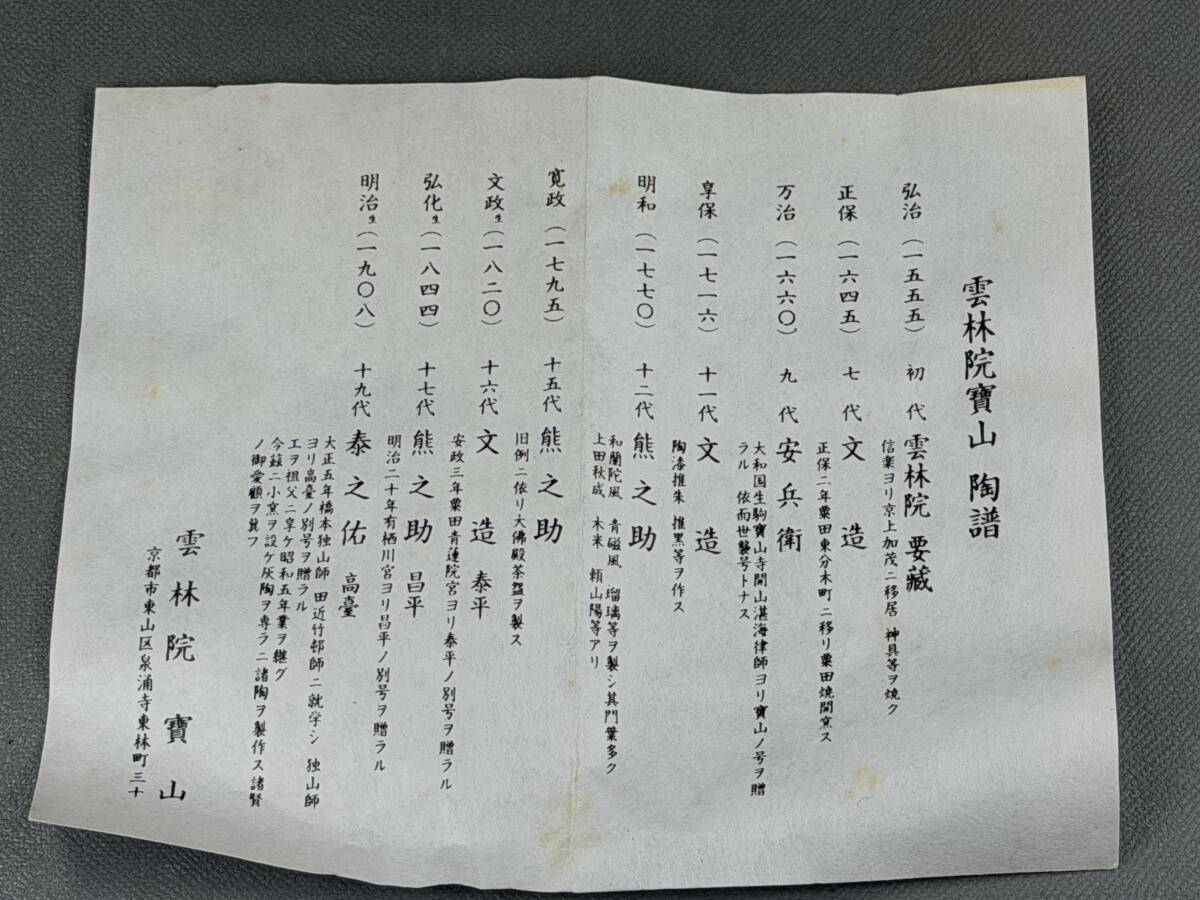 雲林院寶山 陶譜
弘治(一五五五) 初代 雲林院 要藏
信楽ヨリ京上加茂ニ移居 神具等ヲ焼ク
正保(一六四五) 七代 文造
正保二年粟田東分木町ニ移リ粟田焼開窯ス
万治(一六六〇) 九代 安兵衛
大和国生駒寶山寺開山湛海律師ヨリ寶山ノ号ヲ贈
ラル 依而世襲号トナス
享保(一七一六) 十一代 文造
陶漆推朱 推黒等ヲ作ス
明和(一七七〇) 十二代 熊之助
和蘭陀風 青磁風 瑠璃等ヲ製シ其門葉多ク
上田秋成 木米 頼山陽等アリ
寛政(一七九五) 十五代 熊之助
旧例ニ依リ大佛殿茶盌ヲ製ス
文政生(一八二〇) 十六代 文造 泰平
安政三年粟田青蓮院宮ヨリ泰平ノ別号ヲ贈ラル
弘化生(一八四四) 十七代 熊之助 昌平
明治二十年有栖川宮ヨリ昌平ノ別号ヲ贈ラル
明治生(一九〇八) 十九代 泰之佑 高臺
大正五年橋本独山師 田近竹邨師ニ就学シ 独山師
ヨリ高臺ノ別号ヲ贈ラル
工ヲ祖父ニ享ケ昭和五年業ヲ継グ
今茲ニ小窯ヲ設ケ灰陶ヲ専ラニ諸陶ヲ製作ス諸賢
ノ御愛顧ヲ冀フ
雲林院寶山
京都市東山区泉涌寺東林町三十